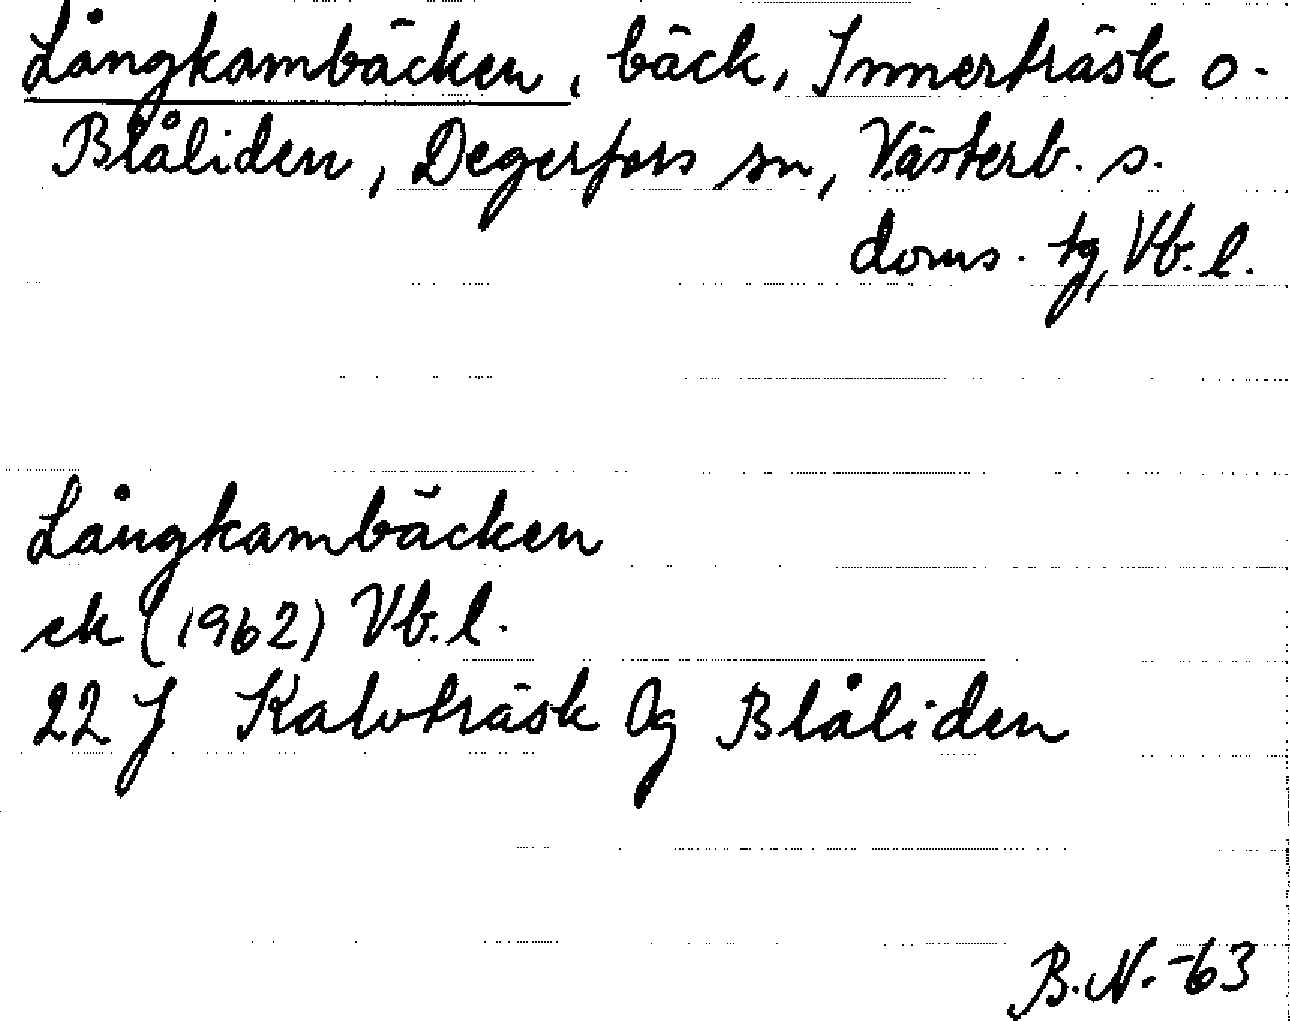 Långkambäcken, bäck, Innerträsk o.
Blåliden, Degerfors sn, Västerb. s.
doms. tg, Vb. l.
Långkambäcken
ek (1962) Vb. l.
22 J Kalvträsk Og Blåliden
B. N. -63